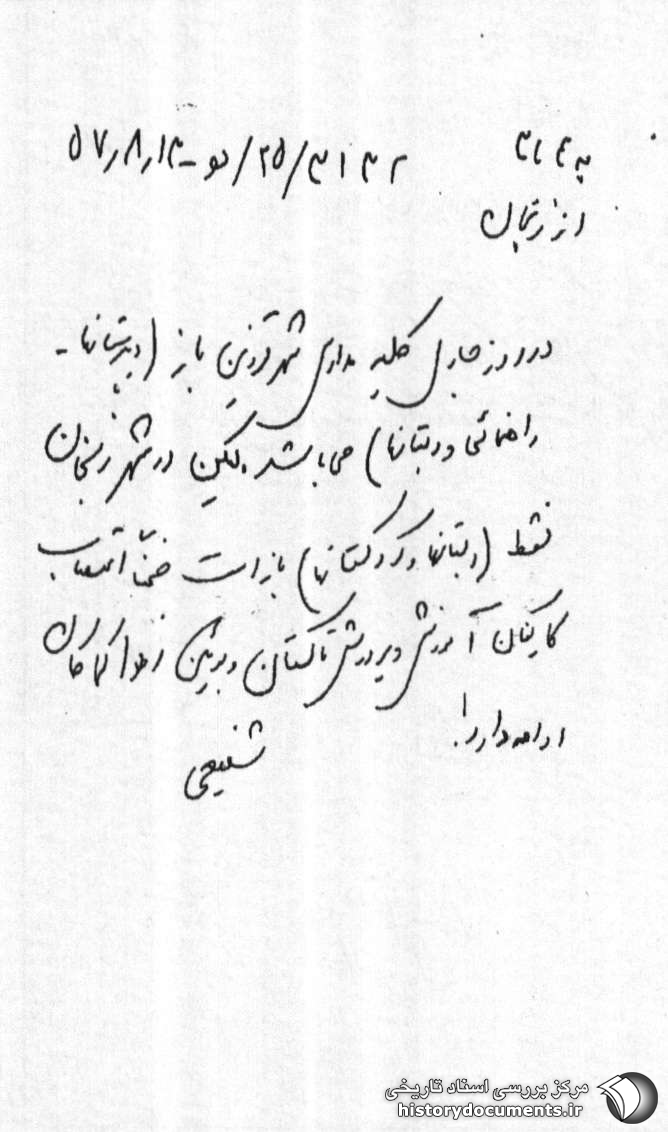 به ۳۴۱ ۳۱۳۲/۲۵/هـ و - ۵۷٫۸٫۱۳
از زنجان
در روز جاری کلیه مدارس شهر قزوین باز (دبیرستانها -
راهنمائی و دبستانها) می‌باشد لیکن در شهر زنجان
فقط (دبستانها و کودکستانها) باز است ضمناً اعتصاب
کارکنان آموزش و پرورش تاکستان و بوئین زهرا کماکان
ادامه دارد.
شفیعی
مرکز بررسی اسناد تاریخی
historydocuments.ir